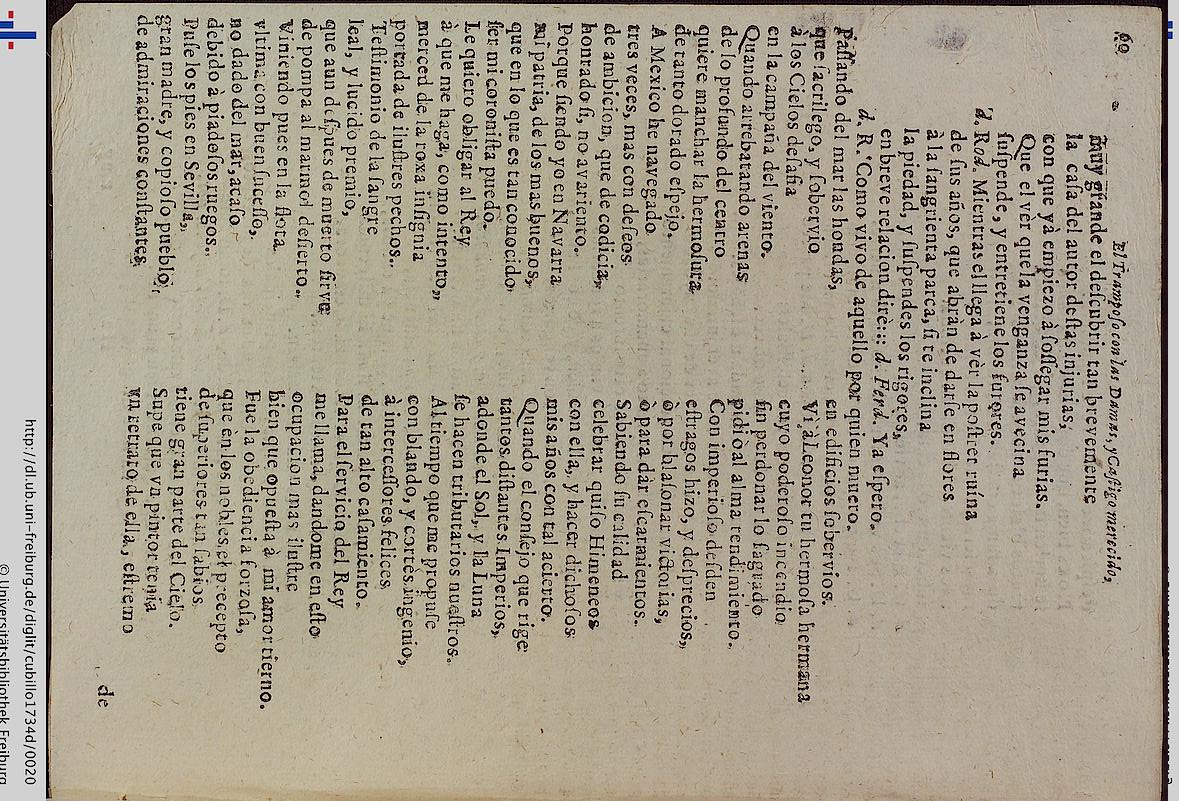 60
El Tramposo con las Damas, y Castigo merecido,
muy grande el descubrir tan brevemente
la casa del autor destas injurias,
con que yà empiezo à sossegar mis furias.
Que el vèr que la venganza se avecina
suspende, y entretiene los furores.
d. Rod. Mientras el llega à vèr la postrer ruína
de sus años, que abràn de darle en flores
à la sangrienta parca, si te inclina
la piedad, y suspendes los rigores,
en breve relacion dirè::: d. Ferd. Ya espero.
d. R. Como vivo de aquello por quien muero.
Passando del mar las hondas,
que sacrilego, y sobervio
à los Cielos desafia
en la campaña del viento.
Quando arrebatando arenas
de lo profundo del centro
quiere manchar la hermosura
de tanto dorado espejo.
A Mexico he navegado
tres veces, mas con deseos
de ambicion, que de codicia,
honrado si, no avariento.
Porque siendo yo en Navarra
mi patria, de los mas buenos,
que en lo que es tan conocido,
ser mi coronista puedo.
Le quiero obligar al Rey
à que me haga, como intento,
merced de la roxa insignia
portada de ilustres pechos.
Testimonio de la sangre
leal, y lucido premio,
que aun despues de muerto sirve
de pompa al marmol desierto.
Viniendo pues en la flota
vltima, con buen sucesso,
no dado del mar, acaso
debido à piadosos ruegos.
Puse los pies en Sevilla,
gran madre, y copioso pueblo,
de admiraciones constantes,
en edificios sobervios.
Vì à Leonor tu hermosa hermana
cuyo poderoso incendio
sin perdonar lo sagrado
pidiò al alma rendimiento.
Con imperioso desden
estragos hizo, y desprecios,
ò por blasonar victorias,
ò para dàr escarmientos.
Sabiendo su calidad
celebrar quiso Himeneos
con ella, y hacer dichosos
mis años con tal acierto.
Quando el consejo que rige
tantos distantes Imperios,
adonde el Sol, y la Luna
se hacen tributarios nuestros.
Al tiempo que me propuse
con blando, y cortès ingenio,
à intercessores felices
de tan alto casamiento.
Para el servicio del Rey
me llama, dandome en esto
ocupacion mas ilustre
bien que opuesta à mi amor tierno.
Fue la obediencia forzosa,
que en los nobles, el precepto
de superiores tan sabios
tiene gran parte del Cielo.
Supe que vn pintor tenia
vn retrato de ella, estremo
de
http://dl.ub.uni-freiburg.de/diglit/cubillo1734d/0020
© Universitätsbibliothek Freiburg